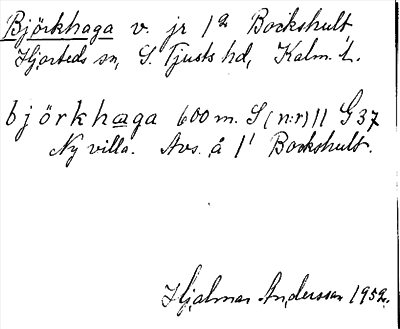 Björkhaga v. jr 1² Bockshult
Hjorteds sn, S. Tjusts hd, Kalm. l.
björkhaga 600 m. S (n:r) 11 G37
Ny villa. Avs. å 1¹ Bockshult.
Hjalmar Andersson 1952.